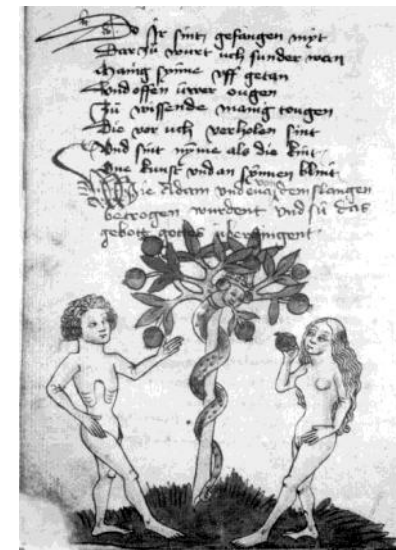 Do Ir sint gefangen myt
Dar zů wurt uch sunder wan
Manig synne uff getan
Vnd offen uwer ougen
Zů wissende manig tougen
Die vor uch verholen sint
Vnd sint nyme als die kint
One kunst vnd an synnen blint
Wie Adam vnd eua von dem slangen
betrogen wurdent vnd sü das
gebott gottes übergingent